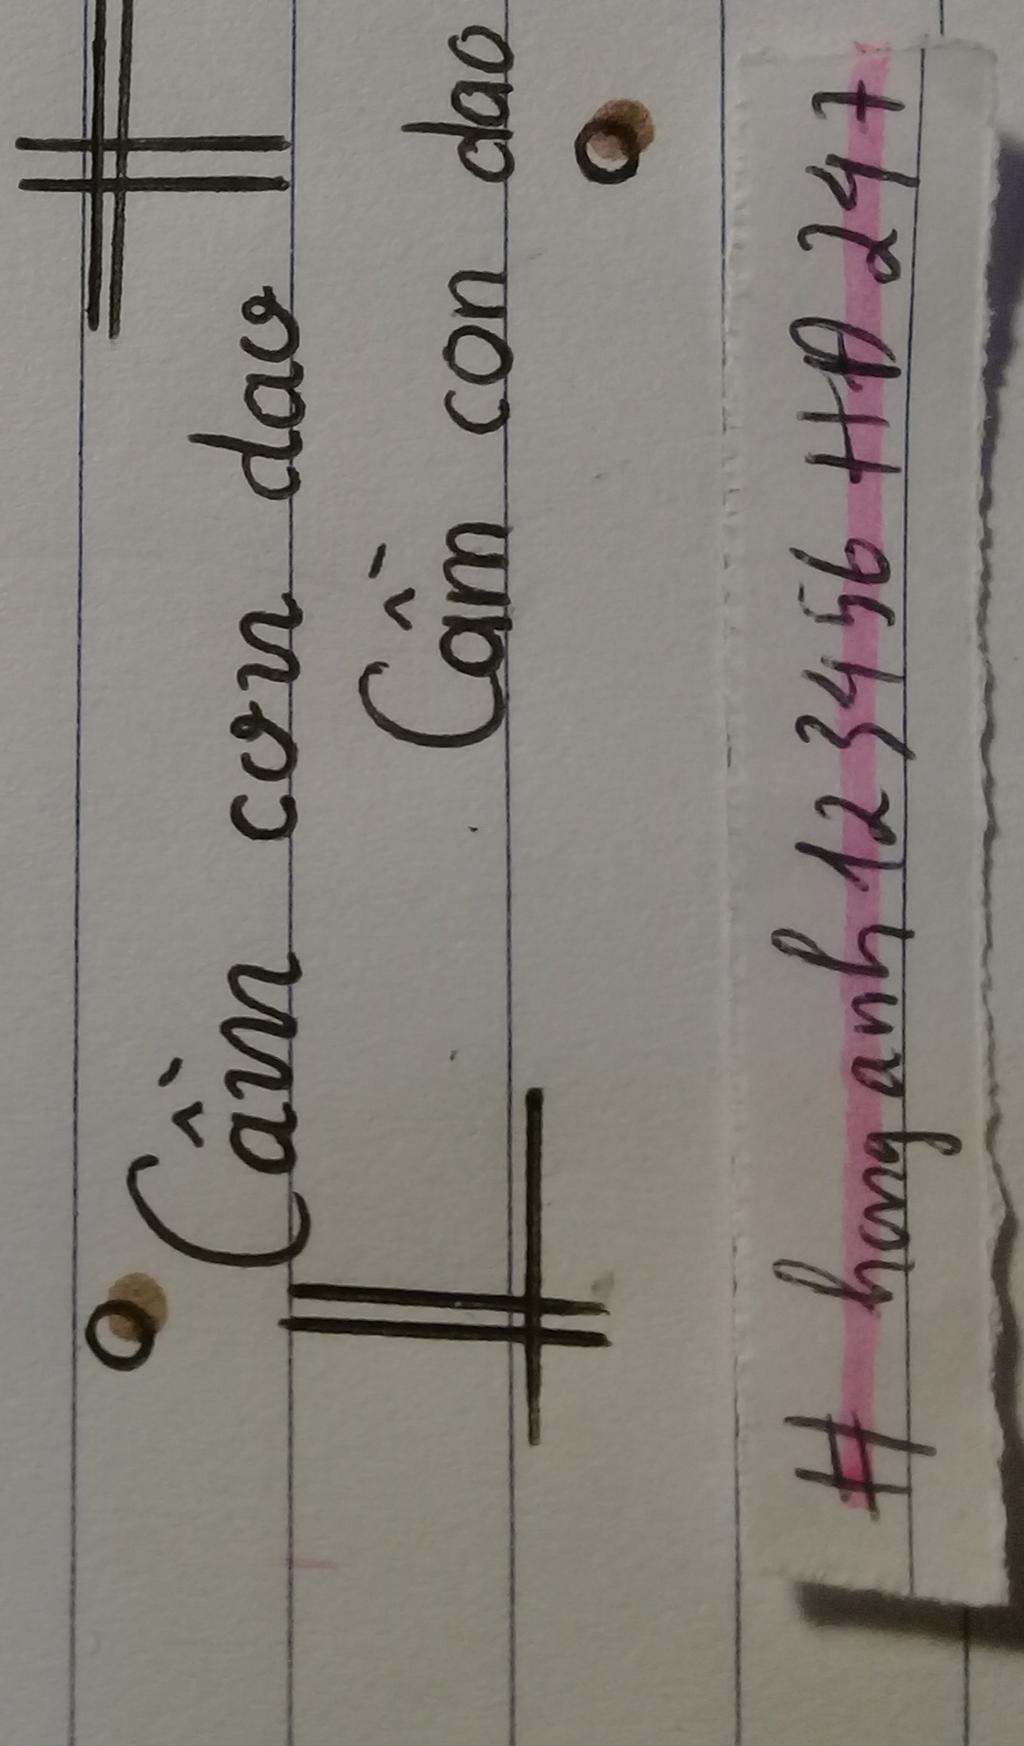 Cầm con dao
Cầm con dao
# hong anh 123456 HA 247